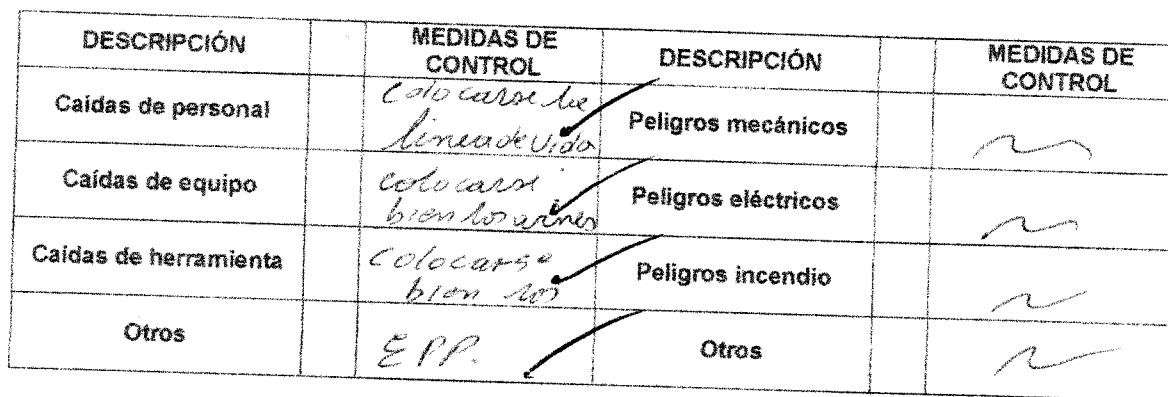 DESCRIPCIÓN MEDIDAS DE CONTROL DESCRIPCIÓN MEDIDAS DE CONTROL
Caídas de personal
Colocarse la
linea de vida
Peligros mecánicos
Caídas de equipo
colocarse
bien los arines
Peligros eléctricos
Caídas de herramienta
Colocarse
bien los
Peligros incendio
Otros
EPP.
Otros